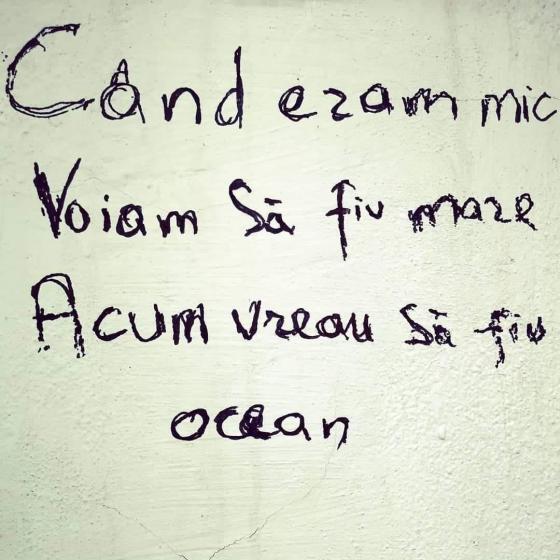 Când eram mic
Voiam Să fiu mare
Acum vreau Să fiu
ocean